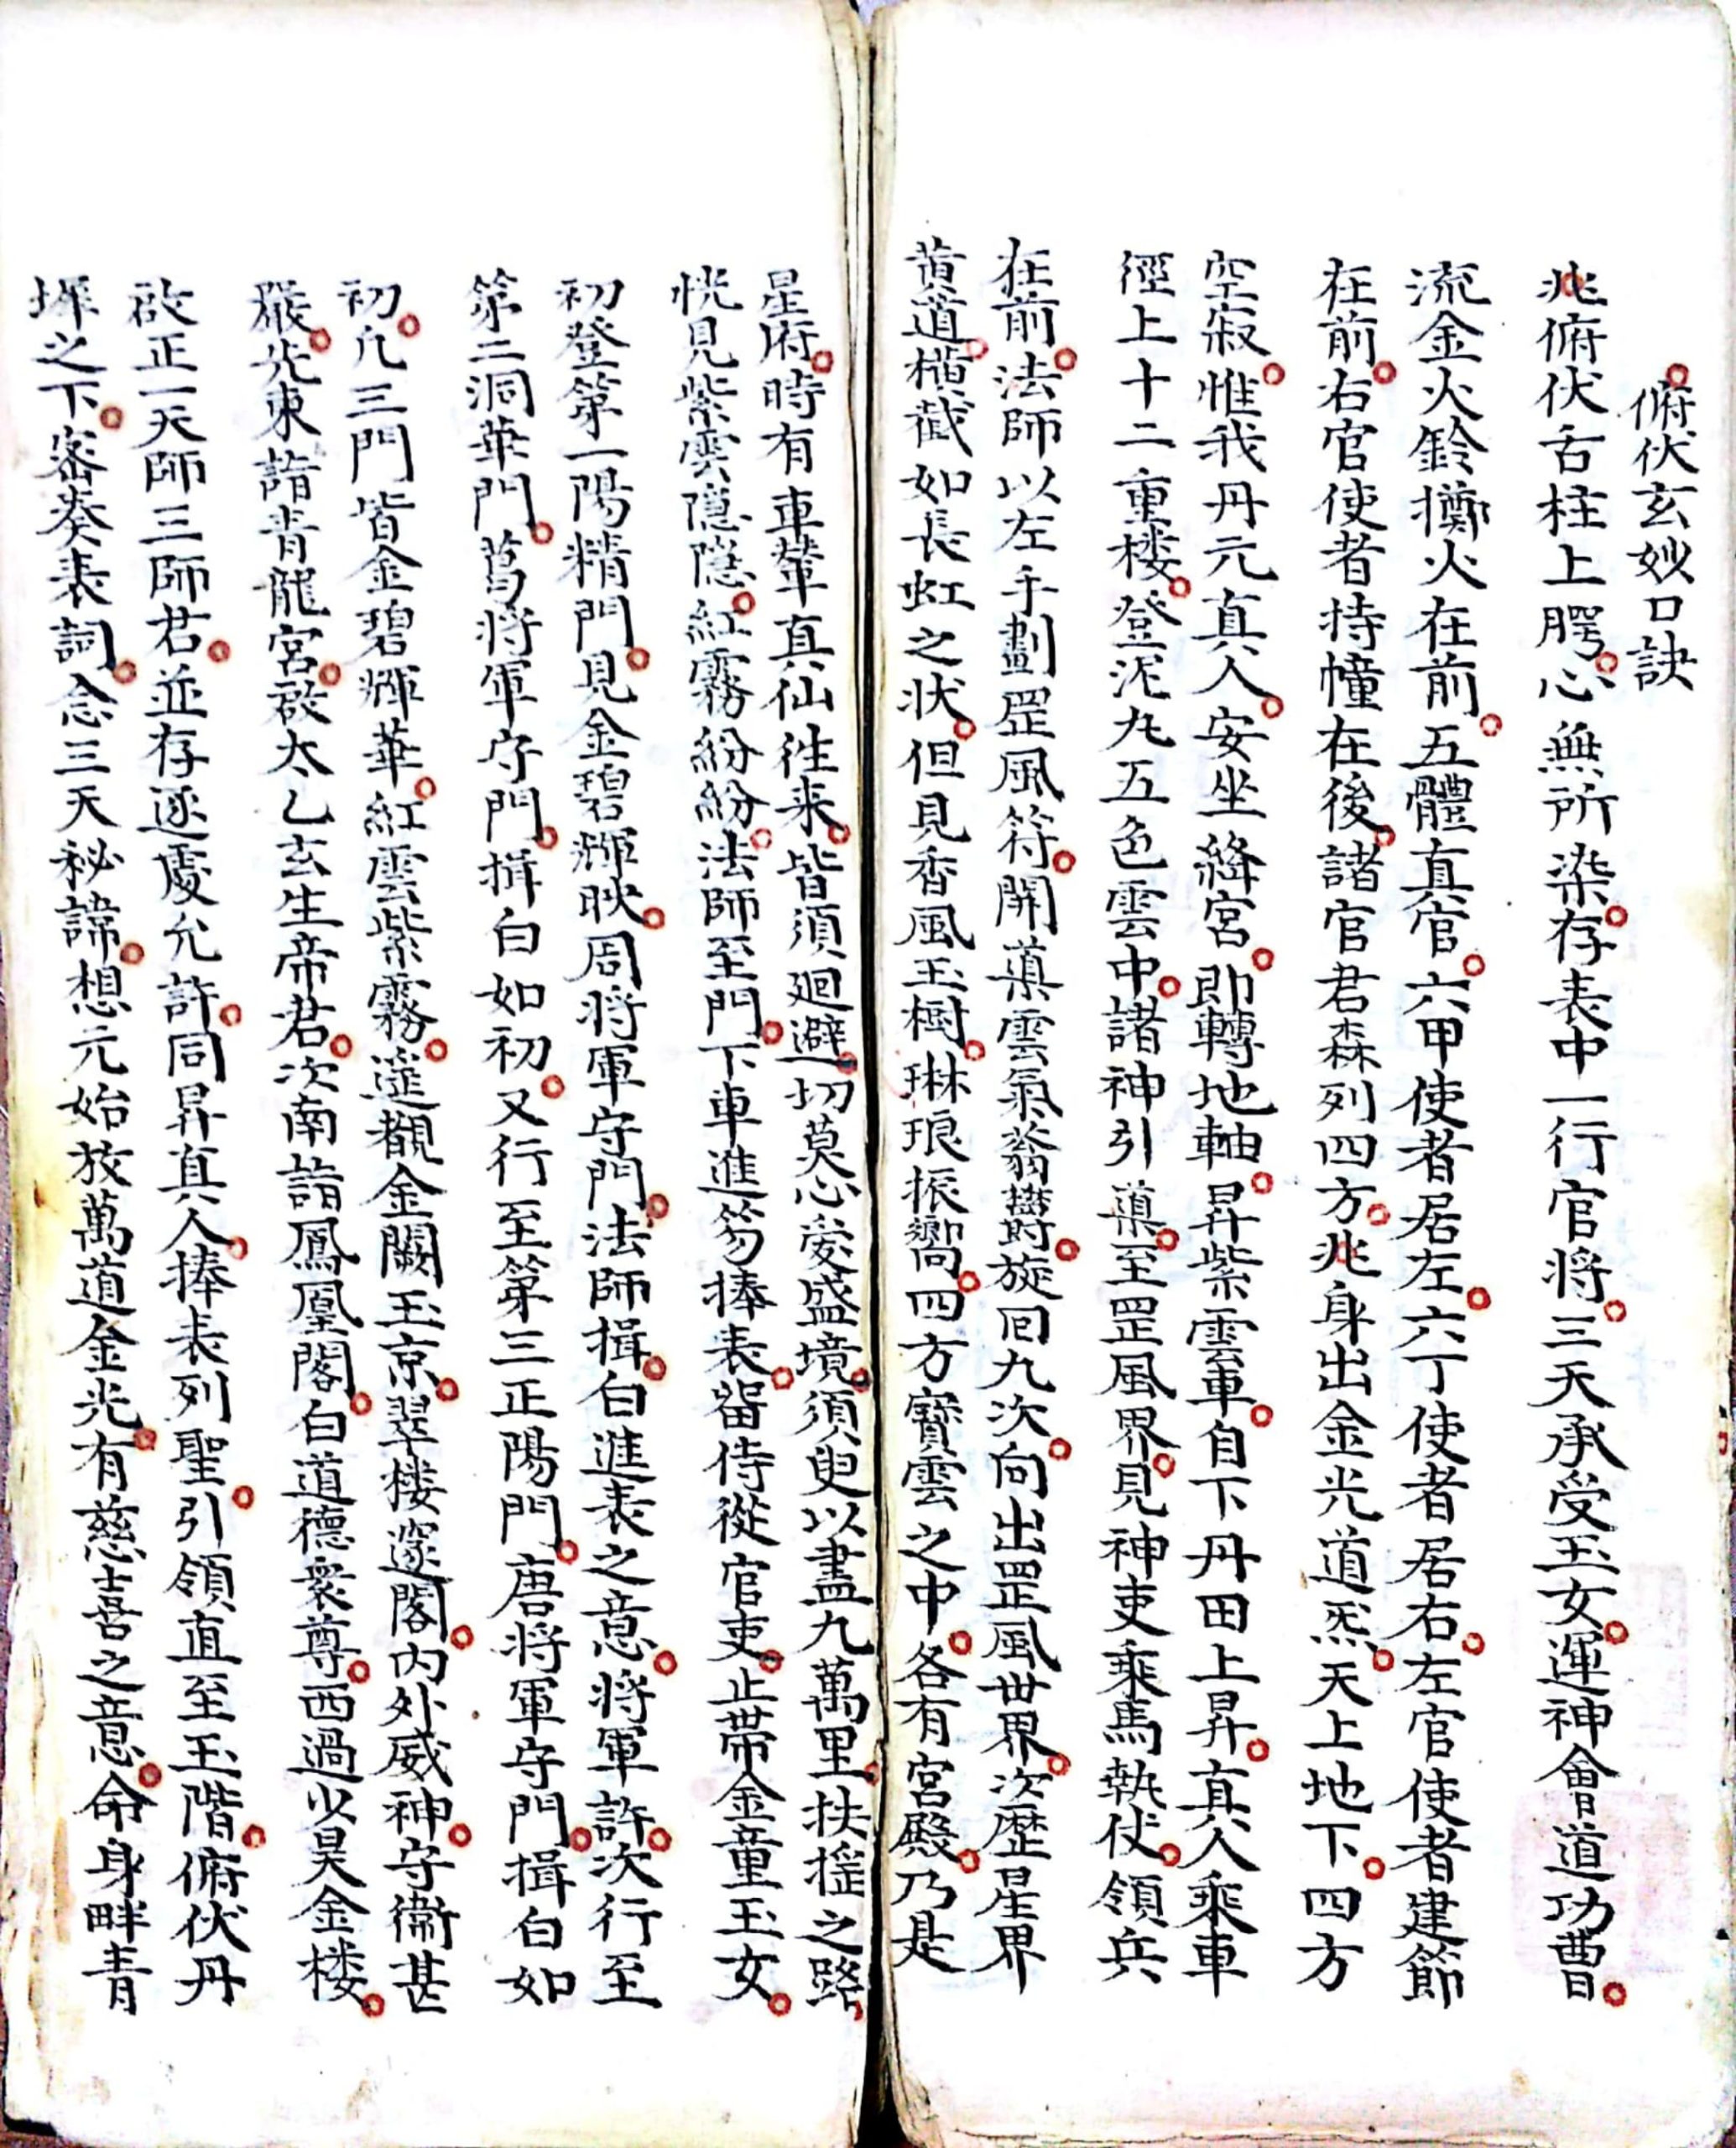 俯伏玄妙口訣
兆俯伏舌柱上腭心無所染存表中一行官将三天承受玉女運神會道功曹
流金火鈴擲火在前五體真官六甲使者居左六丁使者居右左官使者建節
在前右官使者持幢在後諸官君森列四方兆身出金光道炁天上地下四方
空寂惟我丹元真人安坐絳宮即轉地軸昇紫雲車自下丹田上昇真人乘車
徑上十二重楼登泥丸五色雲中諸神引導至罡風界見神吏乘馬執伏領兵
在前法師以左手劃罡風符開導雲氣蓊欝旋回九次向出罡風世界次歷星界
黄道橫截如長虹之状但見香風玉樹琳琅振嚮四方寶雲之中各有宮殿乃是
星府時有車輦真仙徃来皆須廻避切莫心爱盛境須臾以盡九萬里扶摇之路
恍見紫雲隱隱紅霧紛紛法師至門下車進笏捧表留侍從官吏止带金童玉女
初登第一陽精門見金碧輝映周将軍守門法師揖白進表之意将軍許次行至
第二洞華門葛将軍守門揖白如初又行至第三正陽門唐将軍守門揖白如
初凡三門皆金碧輝華紅雲紫霧遥觀金闕玉京翠楼邃閣内外威神守衛甚
嚴先東詣青龍宮啟太乙玄生帝君次南詣鳳凰閣白道德衆尊西過少昊金楼
啟正一天師三師君並存逐處允許同昇真人捧表列聖引領直至玉階俯伏丹
墀之下宻奏表詞念三天祕諱想元始放萬道金光有慈喜之意命身畔青